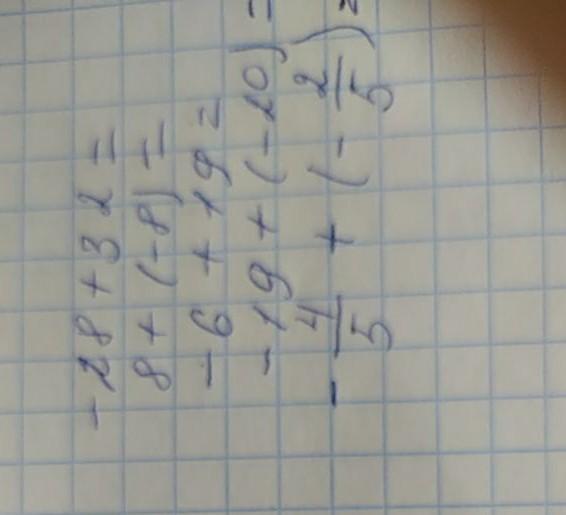 -28+32=
8+(-8)=
-6+19=
-19+(-20)=
-4/5+(-2/5)=